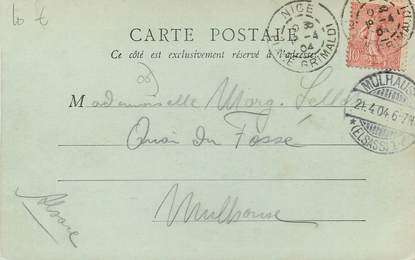 10 f
CARTE POSTALE
Ce côté est exclusivement réservé à l'adresse
NICE
PLACE GRIMALDI
04
10
MULHAUSEN
21.4.04.6-7N
(ELSASS)
Mademoiselle Marg.
Quai du Fossé
Mulhouse
Alsace